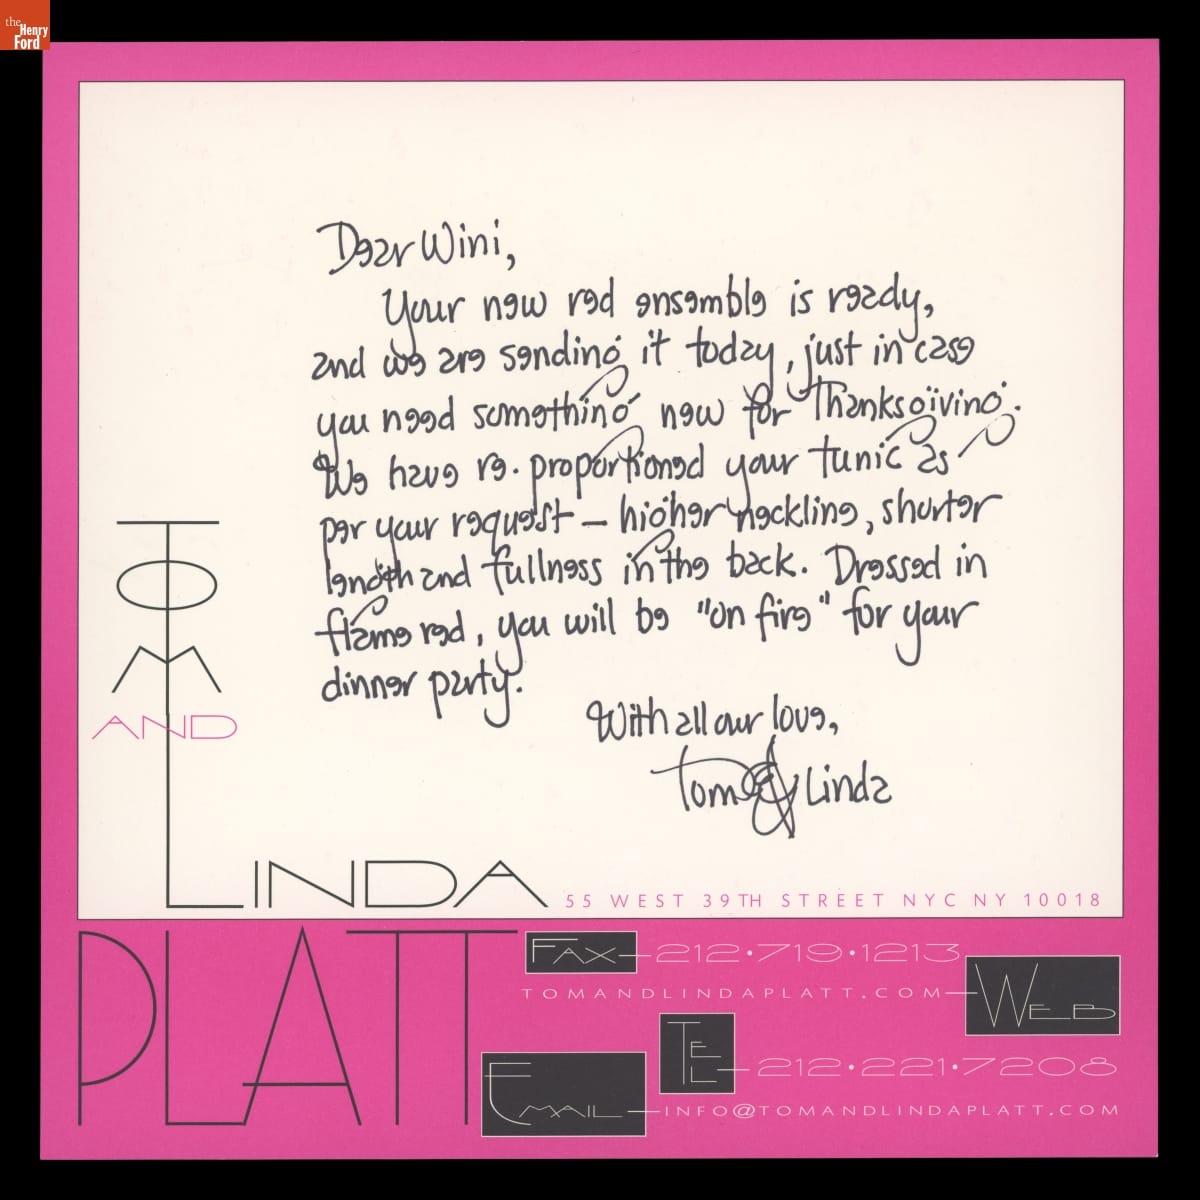 the
Henry
Ford
Dear Wini,
Your new red ensemble is ready,
and we are sending it today, just in case
you need something new for Thanksgiving.
We have re-proportioned your tunic as
per your request – higher neckline, shorter
length and fullness in the back. Dressed in
flame red, you will be "on fire" for your
dinner party.
With all our love,
Tom & Linda
TOM
AND
LINDA
55 WEST 39TH STREET NYC NY 10018
PLATT
FAX 212•719•1213
TOMANDLINDAPLATT.COM WEB
TEL 212•221•7208
EMAIL INFO@TOMANDLINDAPLATT.COM